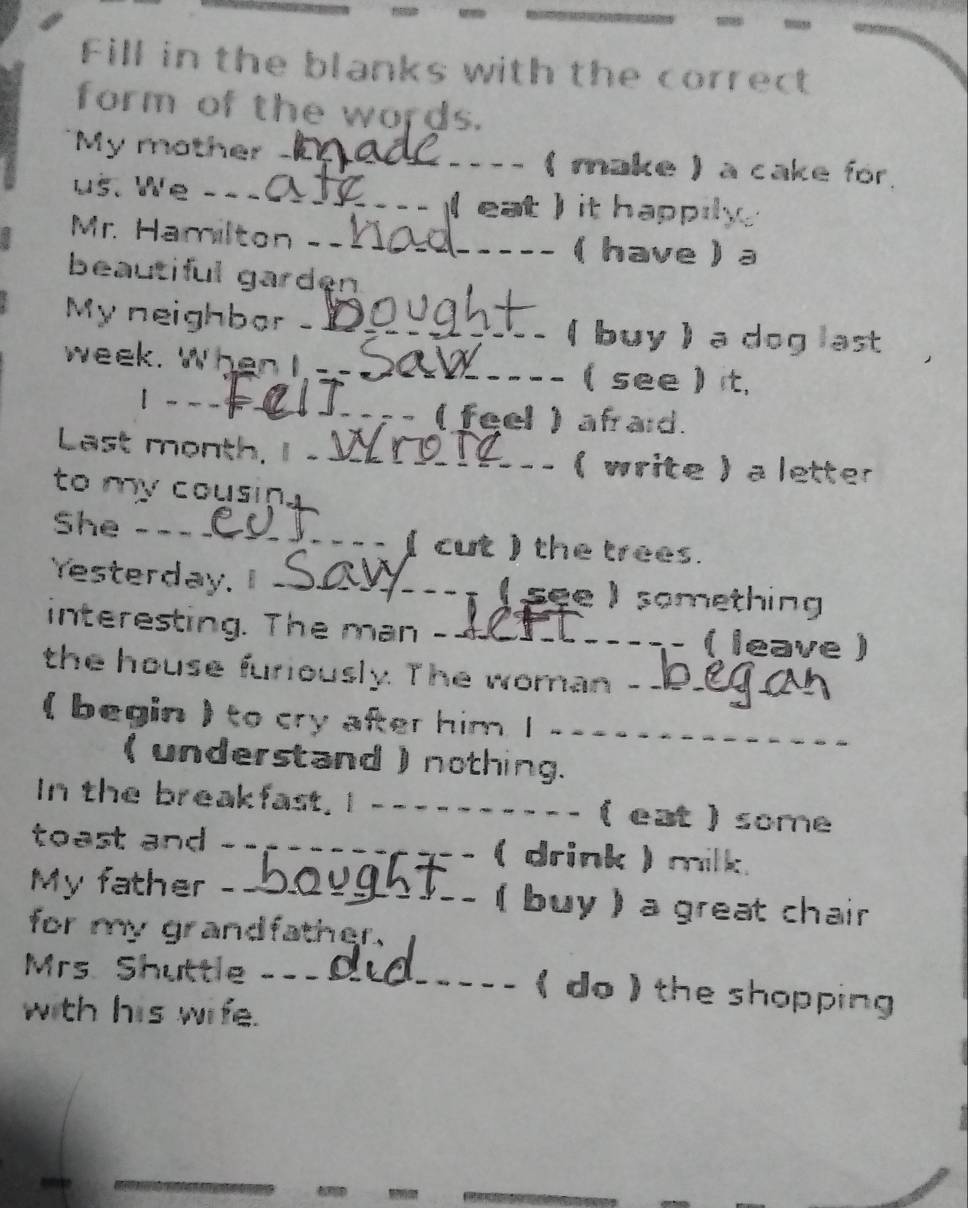 Fill in the blanks with the correct
form of the words.
My mother made ( make ) a cake for
us. We ate ( eat ) it happily.
Mr. Hamilton had ( have ) a
beautiful garden
My neighbor bought ( buy ) a dog last
week. When I saw ( see ) it,
I Felt ( feel ) afraid.
Last month, I wrote ( write ) a letter
to my cousin.
She cut ( cut ) the trees.
Yesterday, I saw ( see ) something
interesting. The man left ( leave )
the house furiously. The woman began
( begin ) to cry after him. I --------------
( understand ) nothing.
In the breakfast, I ---------- ( eat ) some
toast and ------------ ( drink ) milk.
My father bought ( buy ) a great chair
for my grandfather.
Mrs. Shuttle did ( do ) the shopping
with his wife.